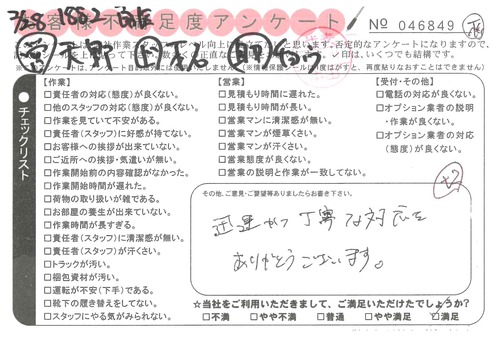 お客様不満足度アンケート
No 046849
【作業】
□責任者の対応(態度)が良くない。
□他のスタッフの対応(態度)が良くない。
□作業を見ていて不安がある。
□責任者(スタッフ)に好感が持てない。
□お客様への挨拶が出来ていない。
□ご近所への挨拶・気遣いが無い。
□作業開始前の内容確認がなかった。
□作業開始時間が遅れた。
□荷物の取り扱いが雑である。
□お部屋の養生が出来ていない。
□作業時間が長すぎる。
□責任者(スタッフ)に清潔感が無い。
□責任者(スタッフ)が汗くさい。
□トラックが汚い。
□梱包資材が汚い。
□運転が不安(下手)である。
□靴下の履き替えをしてない。
□スタッフにやる気がみられない。
【営業】
□見積もり時間に遅れた。
□見積もり時間が長い。
□営業マンに清潔感が無い。
□営業マンが煙草くさい。
□営業マンが汗くさい。
□営業態度が良くない。
□営業の説明と作業が一致してない。
【受付・その他】
□電話の対応が良くない。
□オプション業者の説明
・作業が良くない。
□オプション業者の対応
(態度)が良くない。
●チェックリスト
その他、ご意見・ご要望等ありましたらお書き下さい。
迅速かつ丁寧な対応を
ありがとうございます。
☆当社をご利用いただきまして、ご満足いただけたでしょうか?
□不満 □やや不満 □普通 □やや満足 ☑満足